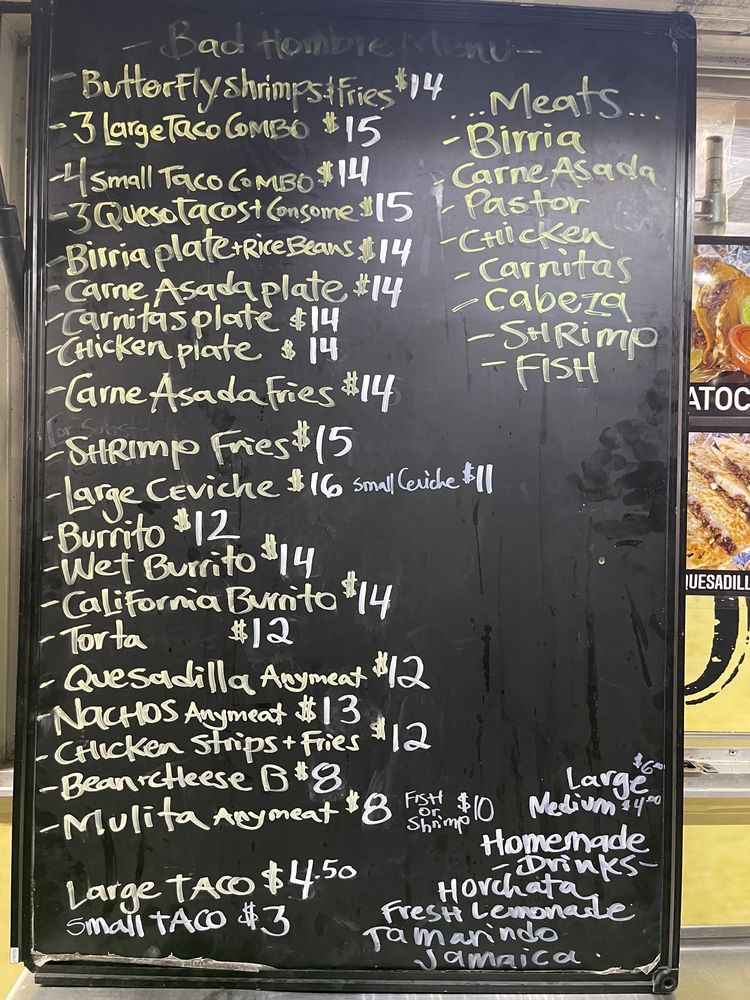 - Bad Hombre Menu -
- Butterfly Shrimps & Fries $14
- 3 Large Taco Combo $15
- 4 Small Taco Combo $14
- 3 Queso tacos + Consome $15
- Birria plate + Rice Beans $14
- Carne Asada plate $14
- Carnitas plate $14
- Chicken plate $14
- Carne Asada Fries $14
- SHRimp Fries $15
- Large Ceviche $16 Small Ceviche $11
- Burrito $12
- Wet Burrito $14
- California Burrito $14
- Torta $12
- Quesadilla Anymeat $12
- Nachos Anymeat $13
- Chicken Strips + Fries $12
- Bean + cheese B $8
- Mulita Anymeat $8 Fish or Shrimp $10
Large TACO $4.50
Small TACO $3
...Meats...
- Birria
- Carne Asada
- Pastor
- Chicken
- Carnitas
- Cabeza
- SHRimp
- FISH
Large $6.00
Medium $4.00
Homemade
- Drinks -
Horchata
Fresh Lemonade
Tamarindo
Jamaica
ATOC
QUESADILL